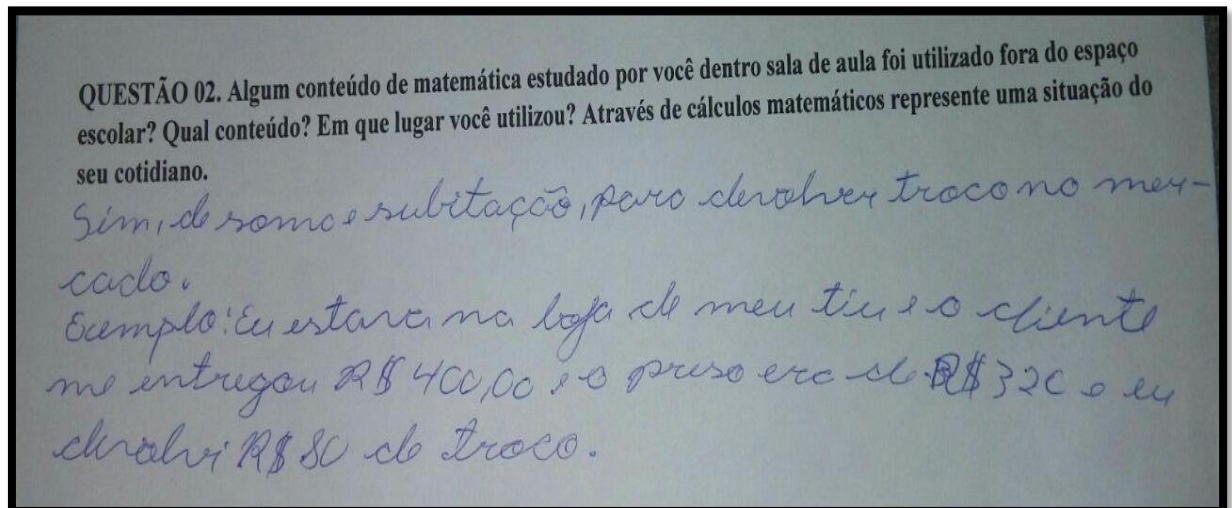 QUESTÃO 02. Algum conteúdo de matemática estudado por você dentro sala de aula foi utilizado fora do espaço
escolar? Qual conteúdo? Em que lugar você utilizou? Através de cálculos matemáticos represente uma situação do
seu cotidiano.
Sim, de soma e subitação, para devolver troco no mer-
cado.
Exemplo: Eu estava na loja de meu tiu e o cliente
me entregou R$ 400,00 e o preso era de R$ 320 e eu
devolvi R$ 80 de troco.